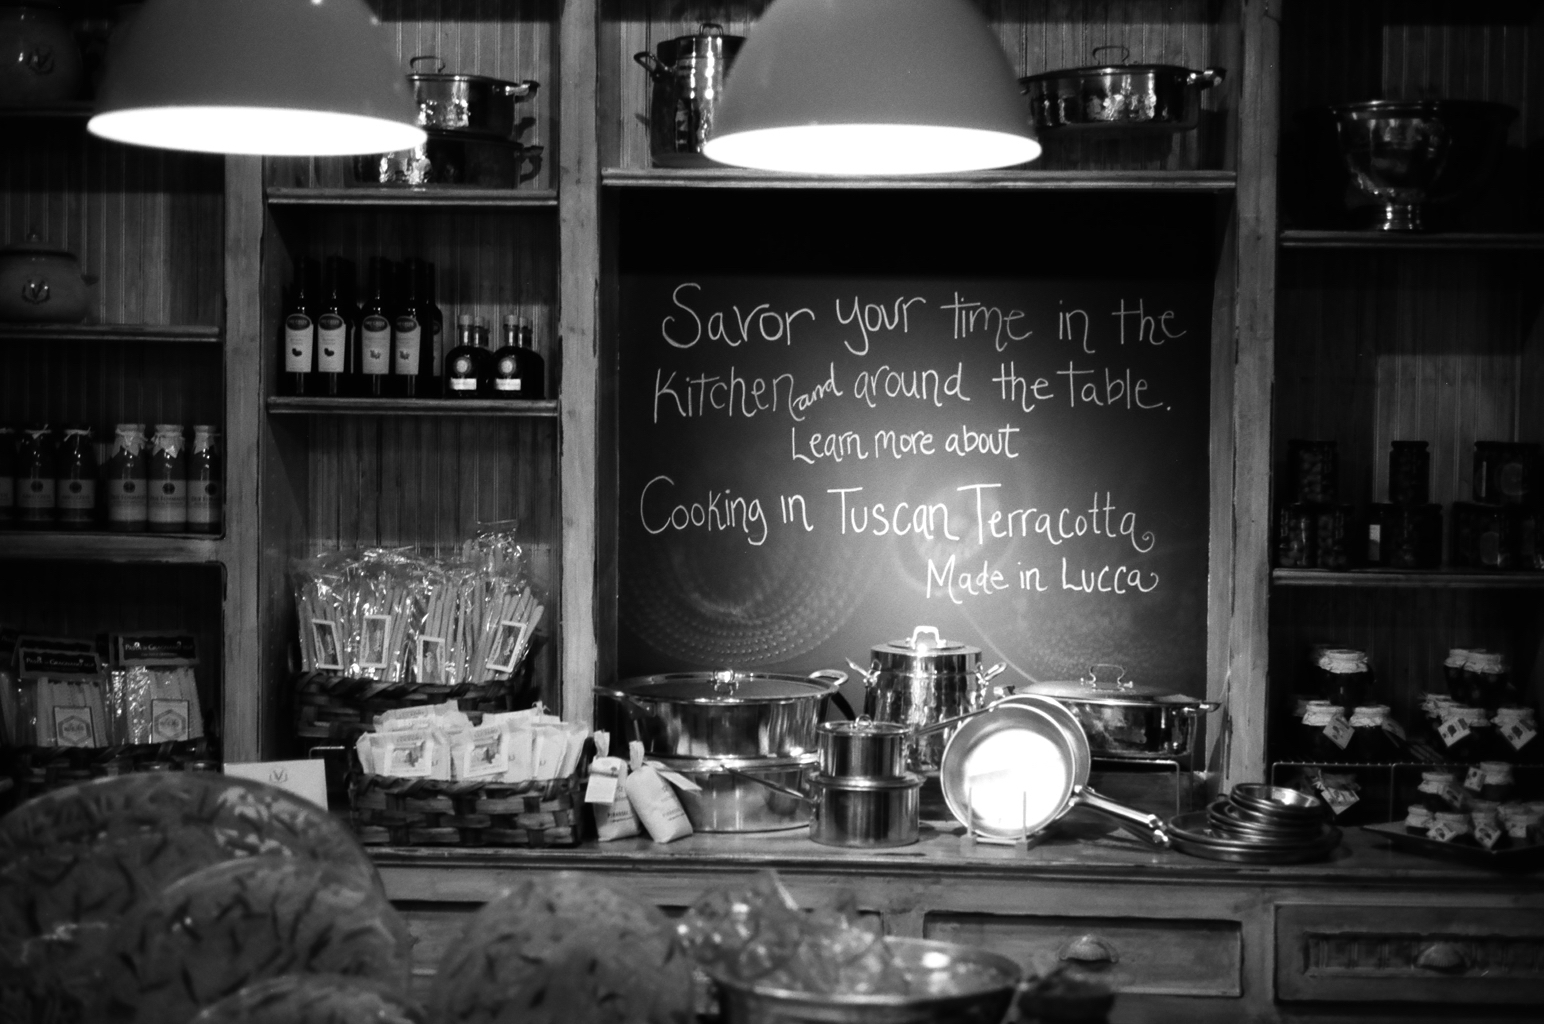 Savor your time in the
Kitchen and around the table.
Learn more about
Cooking in Tuscan Terracotta
Made in Lucca